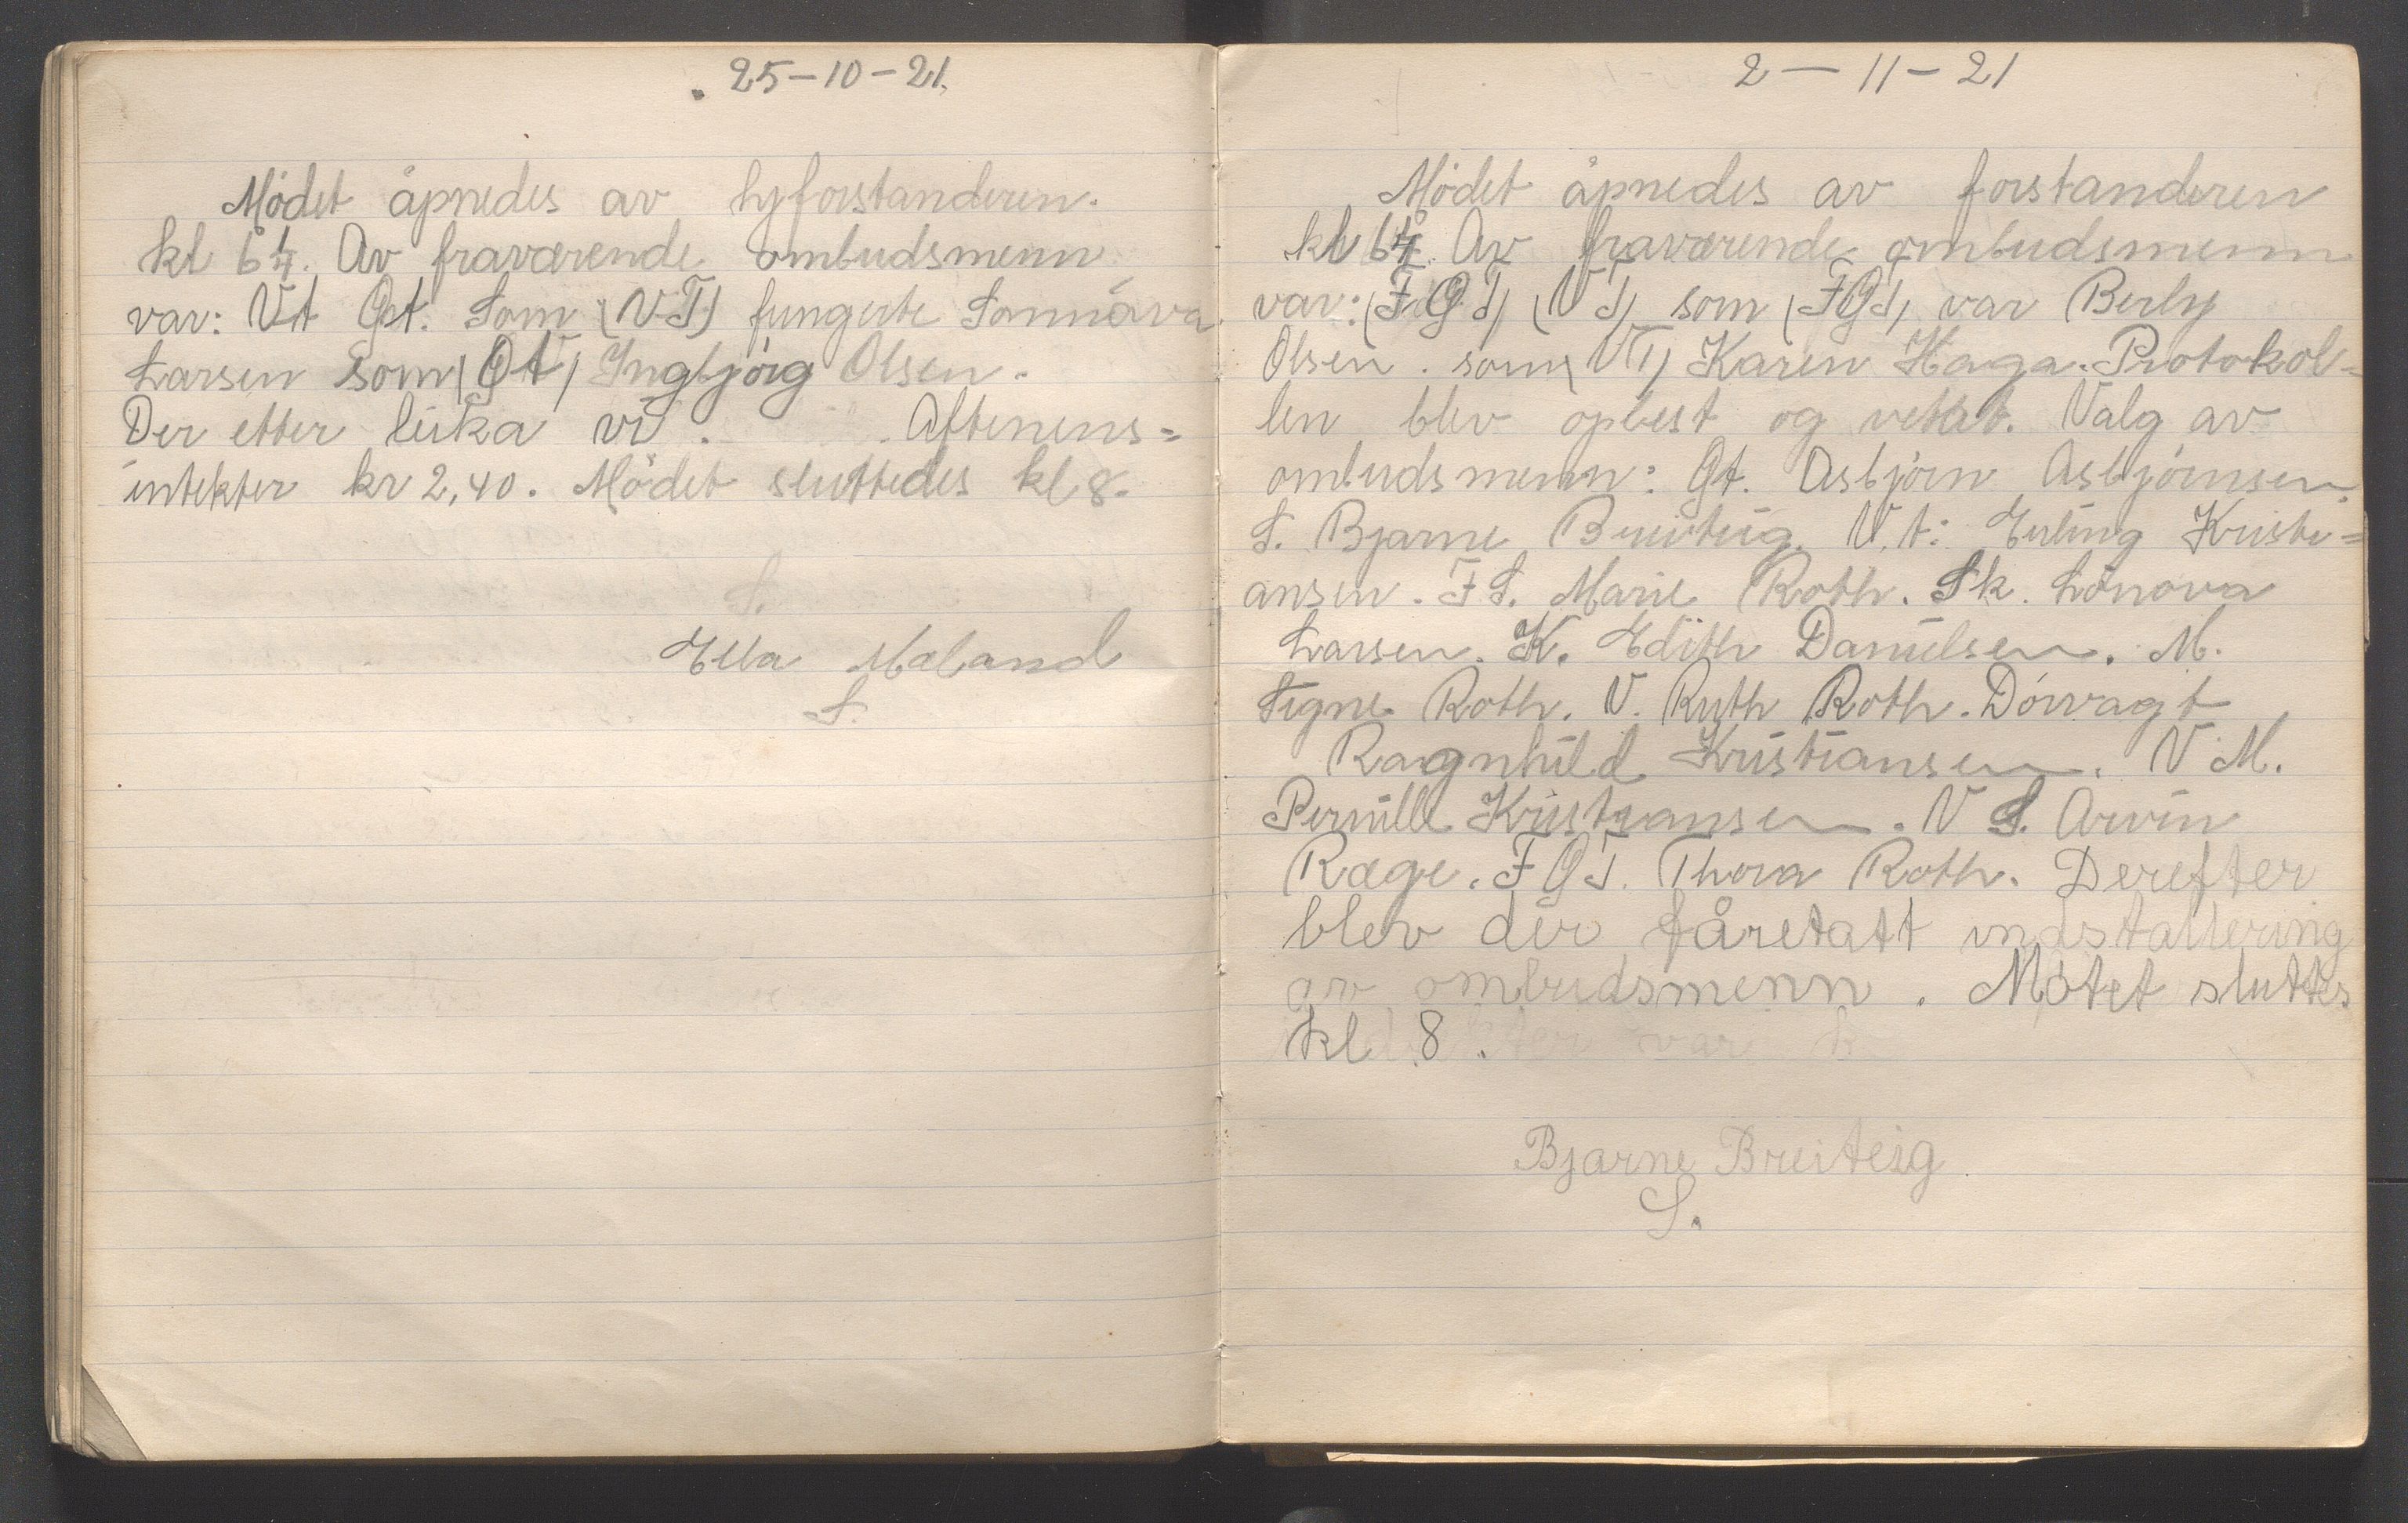 25-10-21.
Mödet åpnedes av hjforstanderen.
kl 6 1/4. Av fraværende ombudsmenn
var: Vt Gt. Som (V.T) fungerte Sonnöva
Larsen som (Gt) Ingbjörg Olsen.
Der etter leika vi. Aftenens=
intekter kr 2,40. Mödet sluttedes kl 8.
S.
Ella Maland
S.
2-11-21
Mödet åpnedes av forstanderen
kl 6 1/4. Av fraværende ombudsmenn
var: (F G T) (V T) som (F G T) var Berly
Olsen. som (V T) Karen Haga. Protokol=
len blev oplest og vetat. Valg av
ombudsmenn: Gt. Asbjörn Asbjörnsen.
S. Bjarne Breiteig. V.t: Erling Kristi=
ansen. F S. Marie Roth. Sk. Lönova
Larsen. K. Edith Danielsen. M.
Signe Roth. V. Ruth Roth. Dörvagt
Ragnhild Kristiansen. V M.
Pernille Kristiansen. V S. Arvin
Ræge. F G T. Thora Roth. Derefter
blev der fåretatt indstallering
av ombudsmenn. Mötet sluttes
kl 8.
Bjarne Breiteig
S.